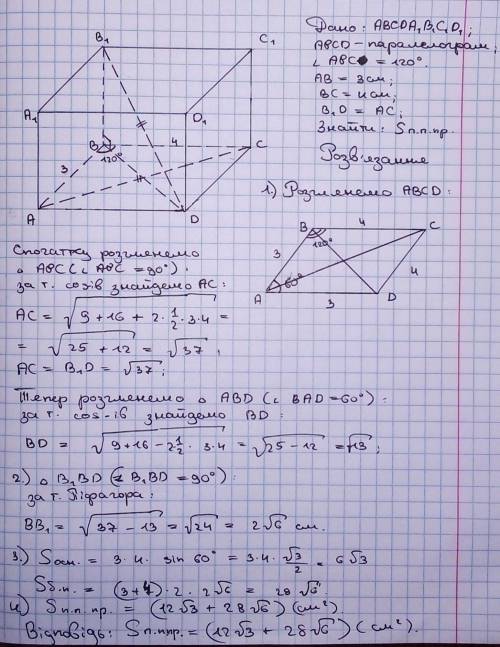 Дано: ABCDA₁B₁C₁D₁;
ABCD - паралелограм;
∠ ABC = 120°.
AB = 3 см;
BC = 4 см;
B₁D = AC;
Знайти: Sп.п.пр.
Розв'язання
1.) Розглянемо ABCD:
B₁
C₁
A₁
D₁
B
4
C
120°
3
A
D
B
4
C
120°
3
4
60°
A
3
D
Спочатку розглянемо
△ ABC (∠ ABC = 90°):
за т. cosів знайдемо AC:
AC = √(9 + 16 + 2 · 1/2 · 3 · 4) =
= √(25 + 12) = √37;
AC = B₁D = √37;
Тепер розглянемо △ ABD (∠ BAD = 60°):
за т. cos-ів знайдемо BD:
BD = √(9 + 16 - 2 1/2 · 3 · 4) = √(25 - 12) = √13;
2.) △ B₁BD (∠ B₁BD = 90°):
за т. Піфагора:
BB₁ = √(37 - 13) = √24 = 2√6 см.
3.) Sосн. = 3 · 4 · sin 60° = 3 · 4 · √3/2 = 6√3
Sб.п. = (3 + 4) · 2 · 2√6 = 28√6.
4.) Sп.п.пр. = (12√3 + 28√6) (см²)
Відповідь: Sп.ппр. = (12√3 + 28√6) (см²).